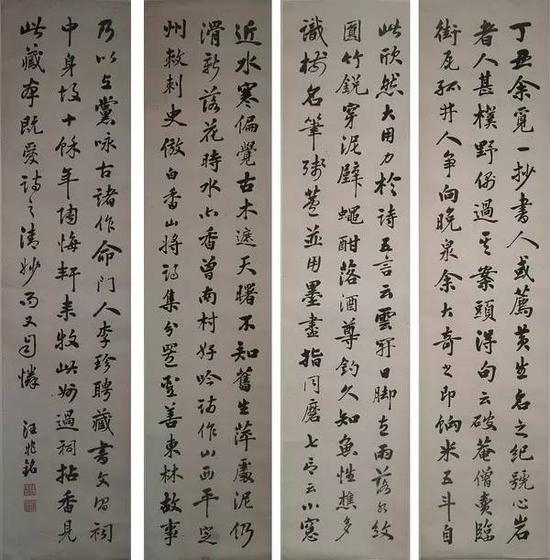 丁丑余覓一抄書人或薦黄生名之紀號心岩
者人甚樸野偶過其案頭得句云破庵僧賣臨
街瓦孤井人争向晚泉余大奇之即餉米五斗自
此欣然大用力於詩五言云雲開日脚直雨落水紋
圓竹鋭穿泥壁蠅酣落酒尊釣久知魚性樵多
識樹名筆殘蘆並用墨盡指同磨七言云小窓
近水寒偏覺古木遮天曙不知舊生萍處泥仍
滑新落花時水亦香曾南村好吟詩作山西平定
州刺史倣白香山將詩集分置聖善東林故事
乃以上黨咏古諸作命門人李珍聘藏書文昌祠
中身故十餘年陶悔軒来牧此州過祠拈香見
此藏本既愛詩之清妙而又自憐
汪兆銘